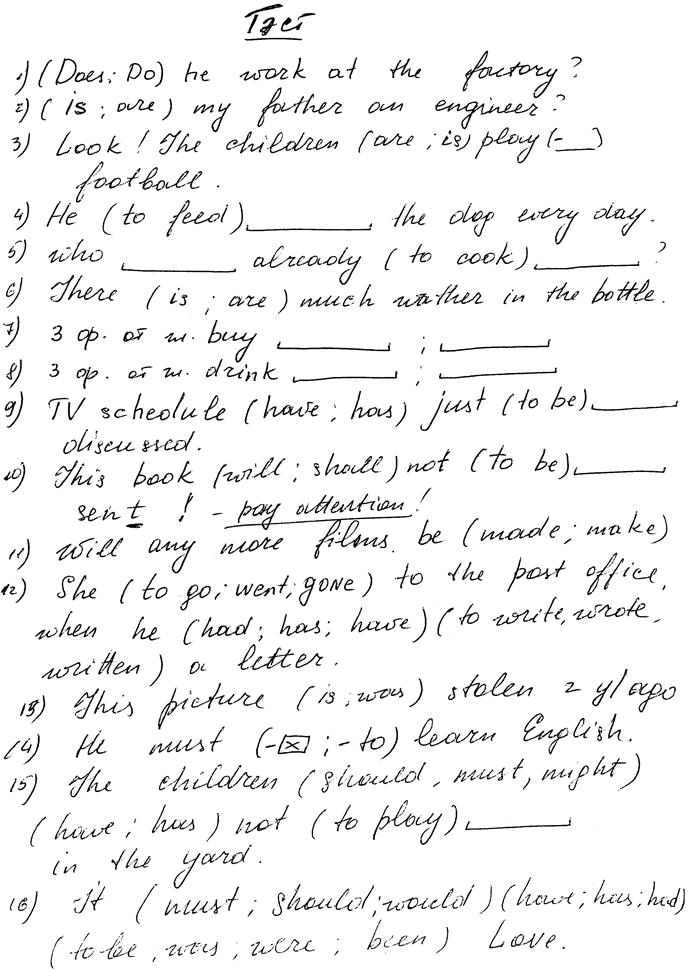 Тест
1) (Does; Do) he work at the factory?
2) ( is ; are ) my father an engineer?
3) Look! The children (are ; is) play (-__)
football.
4) He (to feed)________ the dog every day.
5) who ________ already ( to cook)________?
6) There ( is ; are ) much wather in the bottle.
7) 3 ф. от гл. buy ________ ; ________
8) 3 ф. от гл. drink ________ ; ________
9) TV schedule (have ; has) just (to be)________
discussed.
10) This book (will ; shall) not (to be)________
sent ! - pay attention!
11) will any more films be (made ; make)
12) She ( to go; went; gone ) to the post office,
when he (had ; has ; have) ( to write, wrote,
written ) a letter.
13) This picture (is ; was ) stolen 2 y/ago
14) He must (-☒ ; - to) learn English.
15) The children ( should, must, might)
( have ; has ) not ( to play) ________
in the yard.
16) It ( must ; should; would ) (have; has; had)
( to be , was ; were ; been ) Love.